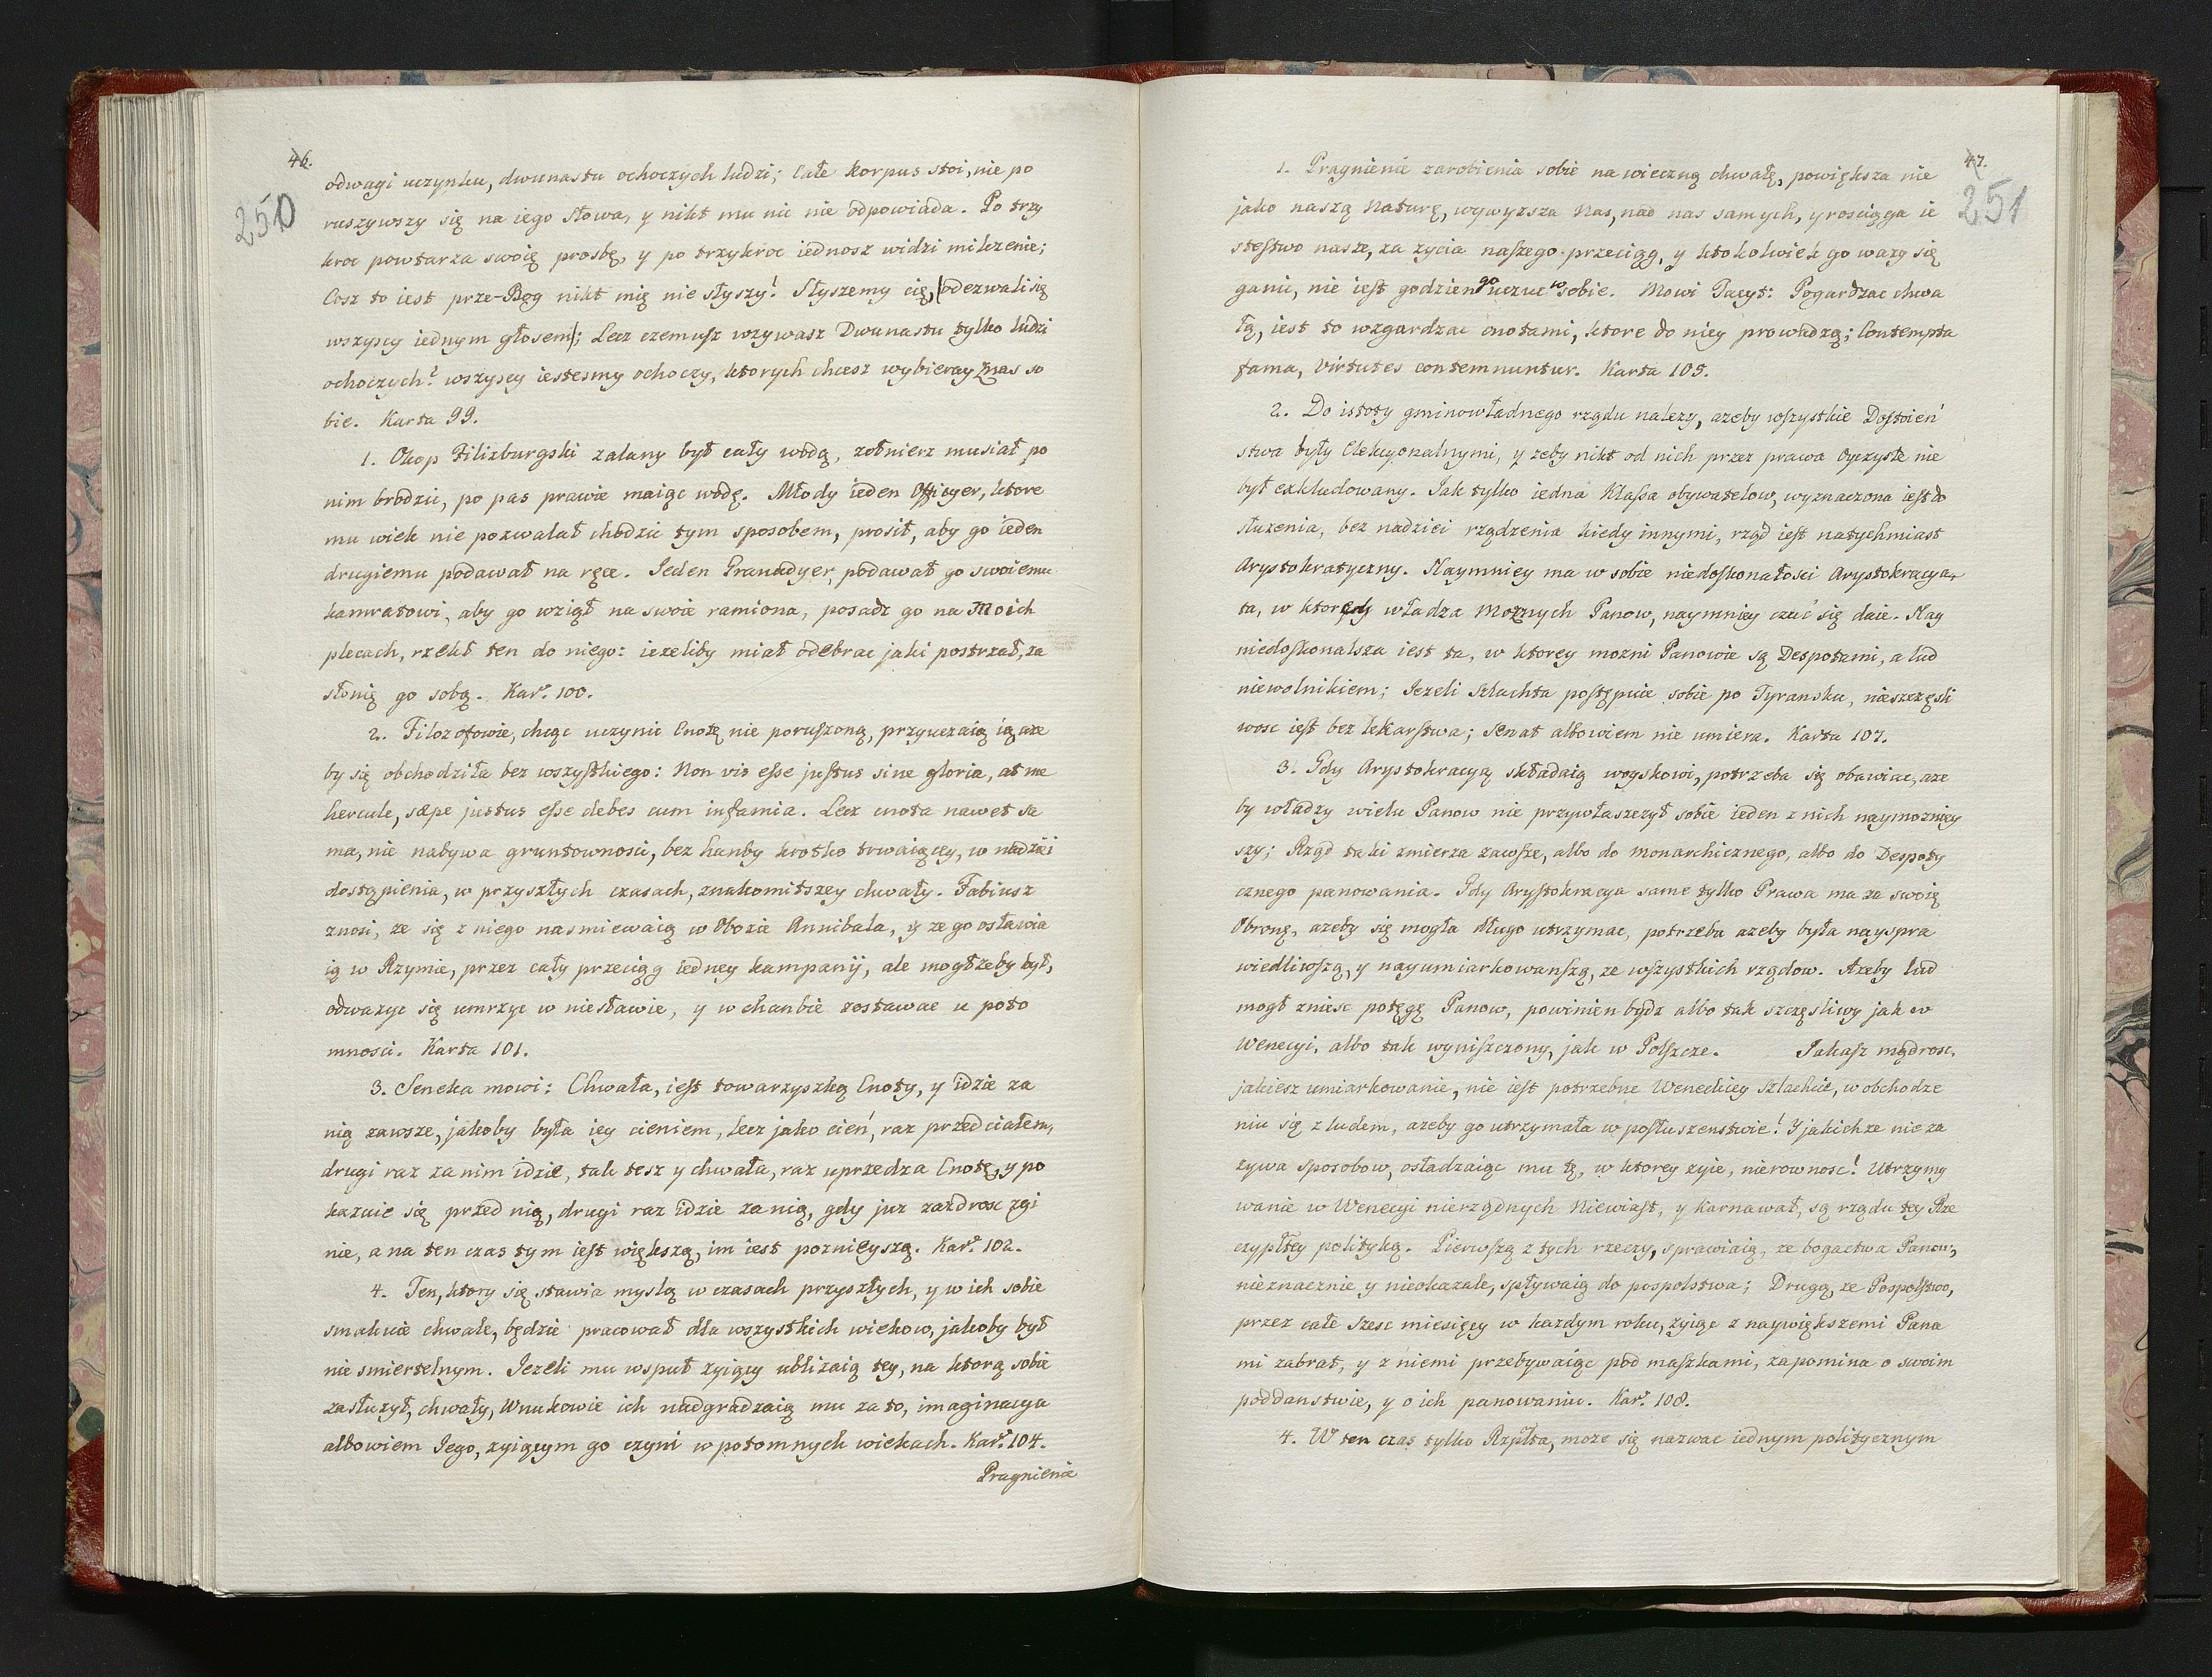 46.
250
odwagi uczynku, dwunastu ochoczych ludzi; Całe Korpus stoi, nie po
ruszywszy się na iego Słowa, y nikt mu nic nie odpowiada. Po trzy
kroc powtarza swoię prosbę, y po trzykroc iednosz widzi milczenie;
Cosz to iest prze-Bog nikt mię nie słyszy! Słyszemy cię, (odezwali się
wszyscy iednym głosem); Lecz czemusz wzywasz Dwunastu tylko ludzi
ochoczych? wszyscy iestesmy ochoczy, ktorych chcesz wybieray z nas so
bie. Karta 99.
1. Okop Filizburgski zalany był cały wodą, zołnierz musiał po
nim brodzic, po pas prawie maiąc wodę. Młody ieden Officyer, ktore
mu wiek nie pozwalał chodzic tym sposobem, prosił, aby go ieden
drugiemu podawał na ręce. Jeden Granadyer, podawał go swoiemu
kamratowi, aby go wziął na swoie ramiona, posadz go na Moich
plecach, rzekł ten do niego: iezeliby miał odebrac jaki postrzał, za
słonię go sobą. Kar: 100.
2. Filozofowie, chcąc uczynic Cnotę nie poruszoną, przyuczaią ią aze
by się obchodziła bez wszystkiego: Non vis esse justus sine gloria, at me
hercule, sæpe justus esse debes cum infamia. Lecz cnota nawet sa
ma, nie nabywa gruntownosci, bez hanby krotko trwaiącey, w nadziei
dostąpienia, w przyszłych czasach, znakomitszey chwały. Fabiusz
znosi, ze się z niego nasmiewaią w Obozie Annibala, y ze go osławia
ią w Rzymie, przez cały przeciąg iedney kampanij, ale mogłzeby był,
odwazyc się umrzyc w niesławie, y w chanbie zostawac u poto
mnosci. Karta 101.
3. Seneka mowi: Chwała, iest towarzyszką Cnoty, y idzie za
nią zawsze, jakoby była iey cieniem, lecz jako cień, raz przed ciałem,
drugi raz za nim idzie, tak tesz y chwała, raz uprzedza Cnotę, y po
kazuie się przed nią, drugi raz idzie za nią, gdy juz zazdrosc zgi
nie, a na ten czas tym iest większą, im iest poznieyszą. Kar: 102.
4. Ten, ktory się stawia myslą w czasach przyszłych, y w ich sobie
smakuie chwale, będzie pracował dla wszystkich wiekow, jakoby był
nie smiertelnym. Jezeli mu wspuł zyiący ublizaią tey, na ktorą sobie
zasłuzył, chwały, Wnukowie ich nadgradzaią mu za to, imaginacya
albowiem Jego, zyiącym go czyni w potomnych wiekach. Kar: 104.
Pragnienie
47.
251
1. Pragnienie zarobienia sobie na wieczną chwałę, powiększa nie
jako naszą Naturę, wywyzsza Nas, nad nas samych, y rosciąga ie
stestwo nasze, za zycia naszego przeciąg, y ktokolwiek go wazy się
ganic, nie iest godzien go uczuc w sobie. Mowi Tacyt: Pogardzac chwa
łą, iest to wzgardzac cnotami, ktore do niey prowadzą; Contempta
fama, Virtutes contemnuntur. Karta 105.
2. Do istoty gminowładnego rządu nalezy, azeby wszystkie Dostoień
stwa były Elekcyonalnymi, y zeby nikt od nich przez prawa Oyczyste nie
był exkludowany. Jak tylko iedna Klassa obywatelow, wyznaczona iest do
słuzenia, bez nadziei rządzenia kiedy innymi, rząd iest natychmiast
Arystokratyczny. Naymniey ma w sobie niedoskonałosci Arystokracya
ta, w ktorey władza Moznych Panow, naymniey czuć się daie. Nay
niedoskonalsza iest ta, w ktorey mozni Panowie są Despotami, a lud
niewolnikiem; Jezeli Szlachta postępuie sobie po Tyransku, nieszczęsli
wosc iest bez lekarstwa; Senat albowiem nie umiera. Karta 107.
3. Gdy Arystokracyą składaią woyskowi, potrzeba się obawiac, aze
by władzy wielu Panow nie przywłaszczył sobie ieden z nich naymozniey
szy; Rząd taki zmierza zawsze, albo do Monarchicznego, albo do Despoty
cznego panowania. Gdy Arystokracya same tylko Prawa ma za swoię
Obronę, azeby się mogła długo utrzymac, potrzeba azeby była nayspra
wiedliwszą, y nayumiarkowanszą, ze wszystkich rządow. Azeby lud
mogł zniesc potęgę Panow, powinien bydz albo tak szczęsliwy jak w
Wenecyi, albo tak wyniszczony, jak w Polszcze. Jakasz mądrosc,
jakiesz umiarkowanie, nie iest potrzebne Weneckiey Szlachcie, w obchodze
niu się z ludem, azeby go utrzymała w posłuszenstwie! Y jakichze nie za
zywa sposobow, osładzaiąc mu tę, w ktorey zyie, nierownosc! Utrzymy
wanie w Wenecyi nierządnych Niewiast, y Karnawał, są rządu tey Rze
czypłtey polityką. Pierwszą z tych rzeczy, sprawiaią, ze bogactwa Panow,
nieznacznie y nieokazale, spływaią do pospolstwa; Drugą, ze Pospolstwo,
przez całe szesc miesięcy w kazdym roku, zyiąc z naywiększemi Pana
mi zabrat, y z niemi przebywaiąc pod maszkami, zapomina o swoim
poddanstwie, y o ich panowaniu. Kar: 108.
4. W ten czas tylko Rzplta, moze się nazwac iednym politycznym